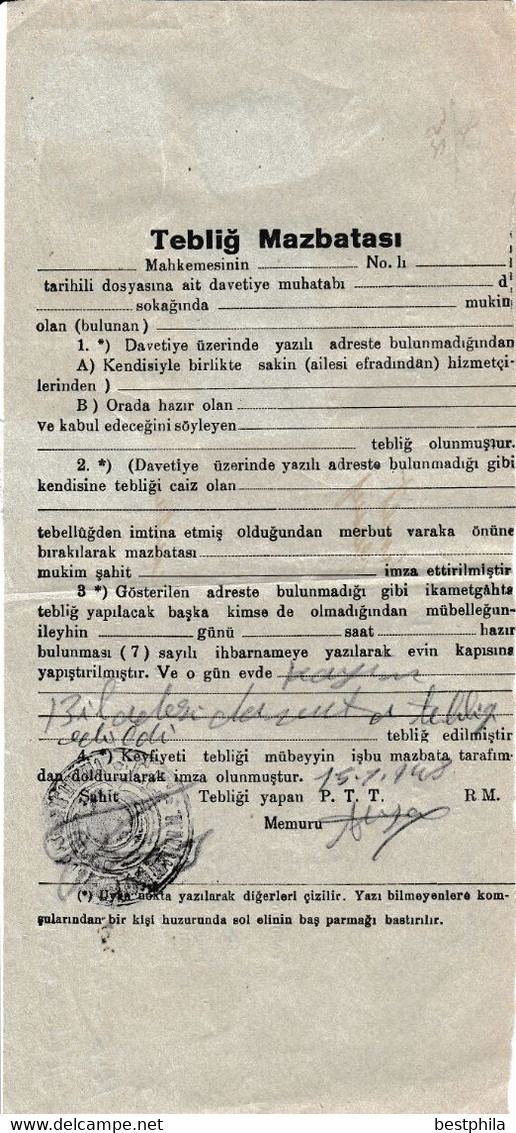 Tebliğ Mazbatası
Mahkemesinin No. lı
tarihili dosyasına ait davetiye muhatabı d
sokağında mukin
olan (bulunan)
1. *) Davetiye üzerinde yazılı adreste bulunmadığından
A) Kendisiyle birlikte sakin (ailesi efradından) hizmetçi-
lerinden )
B ) Orada hazır olan
ve kabul edeceğini söyleyen
tebliğ olunmuştur.
2. *) (Davetiye üzerinde yazılı adreste bulunmadığı gibi
kendisine tebliği caiz olan
tebellüğden imtina etmiş olduğundan merbut varaka önüne
bırakılarak mazbatası
mukim şahit imza ettirilmiştir
3 *) Gösterilen adreste bulunmadığı gibi ikametgâhta
tebliğ yapılacak başka kimse de olmadığından mübelleğun-
ileyhin günü saat hazır
bulunması (7) sayılı ihbarnameye yazılarak evin kapısına
yapıştırılmıştır. Ve o gün evde kayın
Biladeri tebliğ
edildi tebliğ edilmiştir
4. *) Keyfiyeti tebliği mübeyyin işbu mazbata tarafım-
dan doldurularak imza olunmuştur.
Şahit Tebliği yapan P. T. T. R M.
Memuru
(*) Uyan nokta yazılarak diğerleri çizilir. Yazı bilmeyenlere kom-
şularından bir kişi huzurunda sol elinin baş parmağı bastırılır.
bestphila